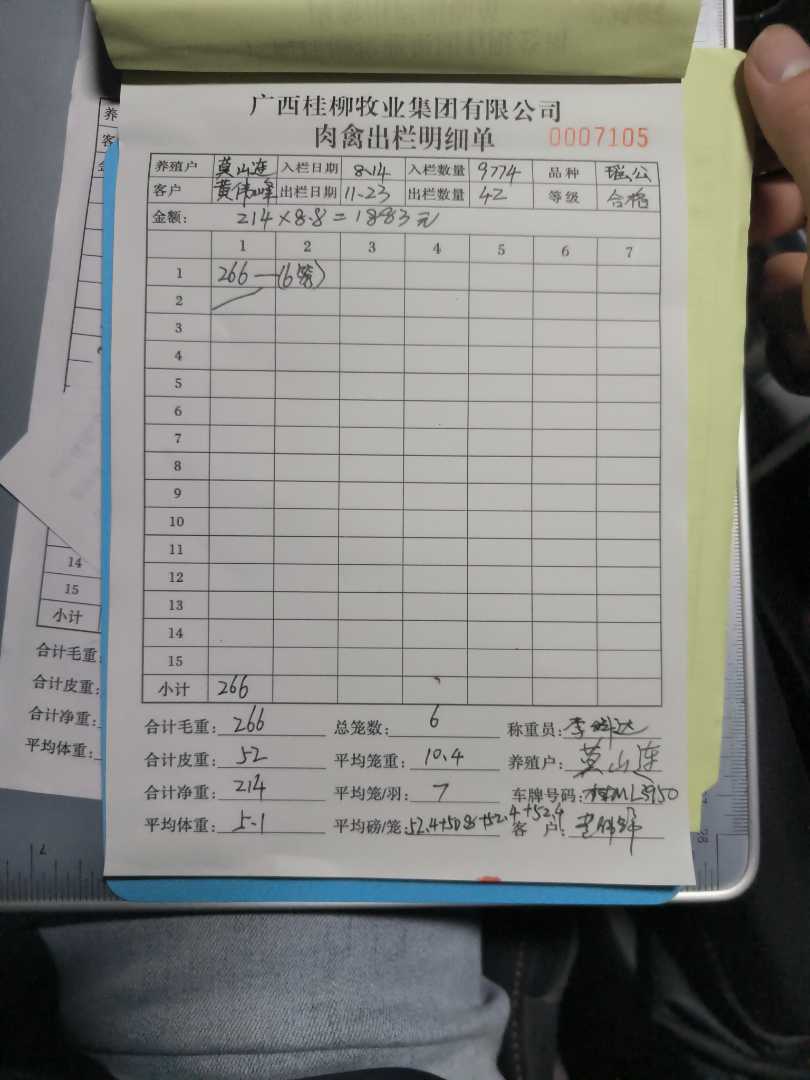 广西桂柳牧业集团有限公司
肉禽出栏明细单 0007105
养殖户 莫山连 入栏日期 8.14 入栏数量 9774 品种 瑶公
客户 黄伟峰 出栏日期 11-23 出栏数量 42 等级 合格
金额: 214×8.8=1883元
1 2 3 4 5 6 7
1 266—(6笼)
2
3
4
5
6
7
8
9
10
11
12
13
14
15
小计 266
合计毛重: 266 总笼数: 6 称重员:
合计皮重: 52 平均笼重: 10.4 养殖户: 莫山连
合计净重: 214 平均笼/羽: 7 车牌号码: 桂ML5950
平均体重: 5.1 平均磅/笼: 52.4+50.8+52.4+52.4 客户:
养
客
14
15
小计
合计毛重:
合计皮重:
合计净重:
平均体重: